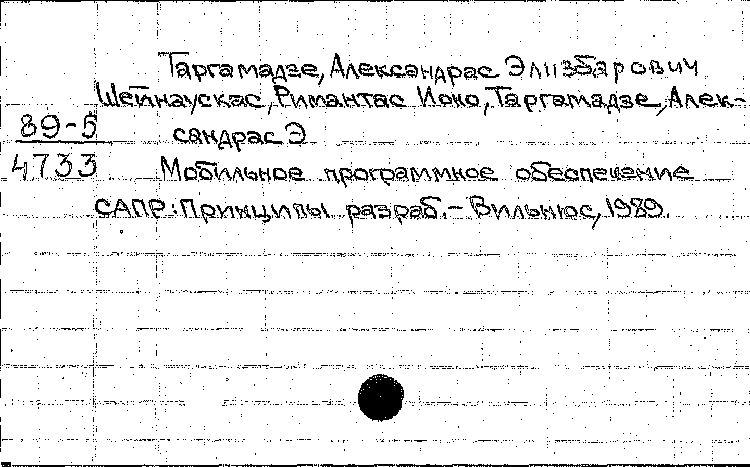 Таргамадзе, Александрас Элизбарович
Шейнаускас, Римантас Ионо, Таргамадзе, Алек-
89-5 сандрас Э
4733 Мобильное программное обеспечение
САПР: Принципы разраб. - Вильнюс, 1989.